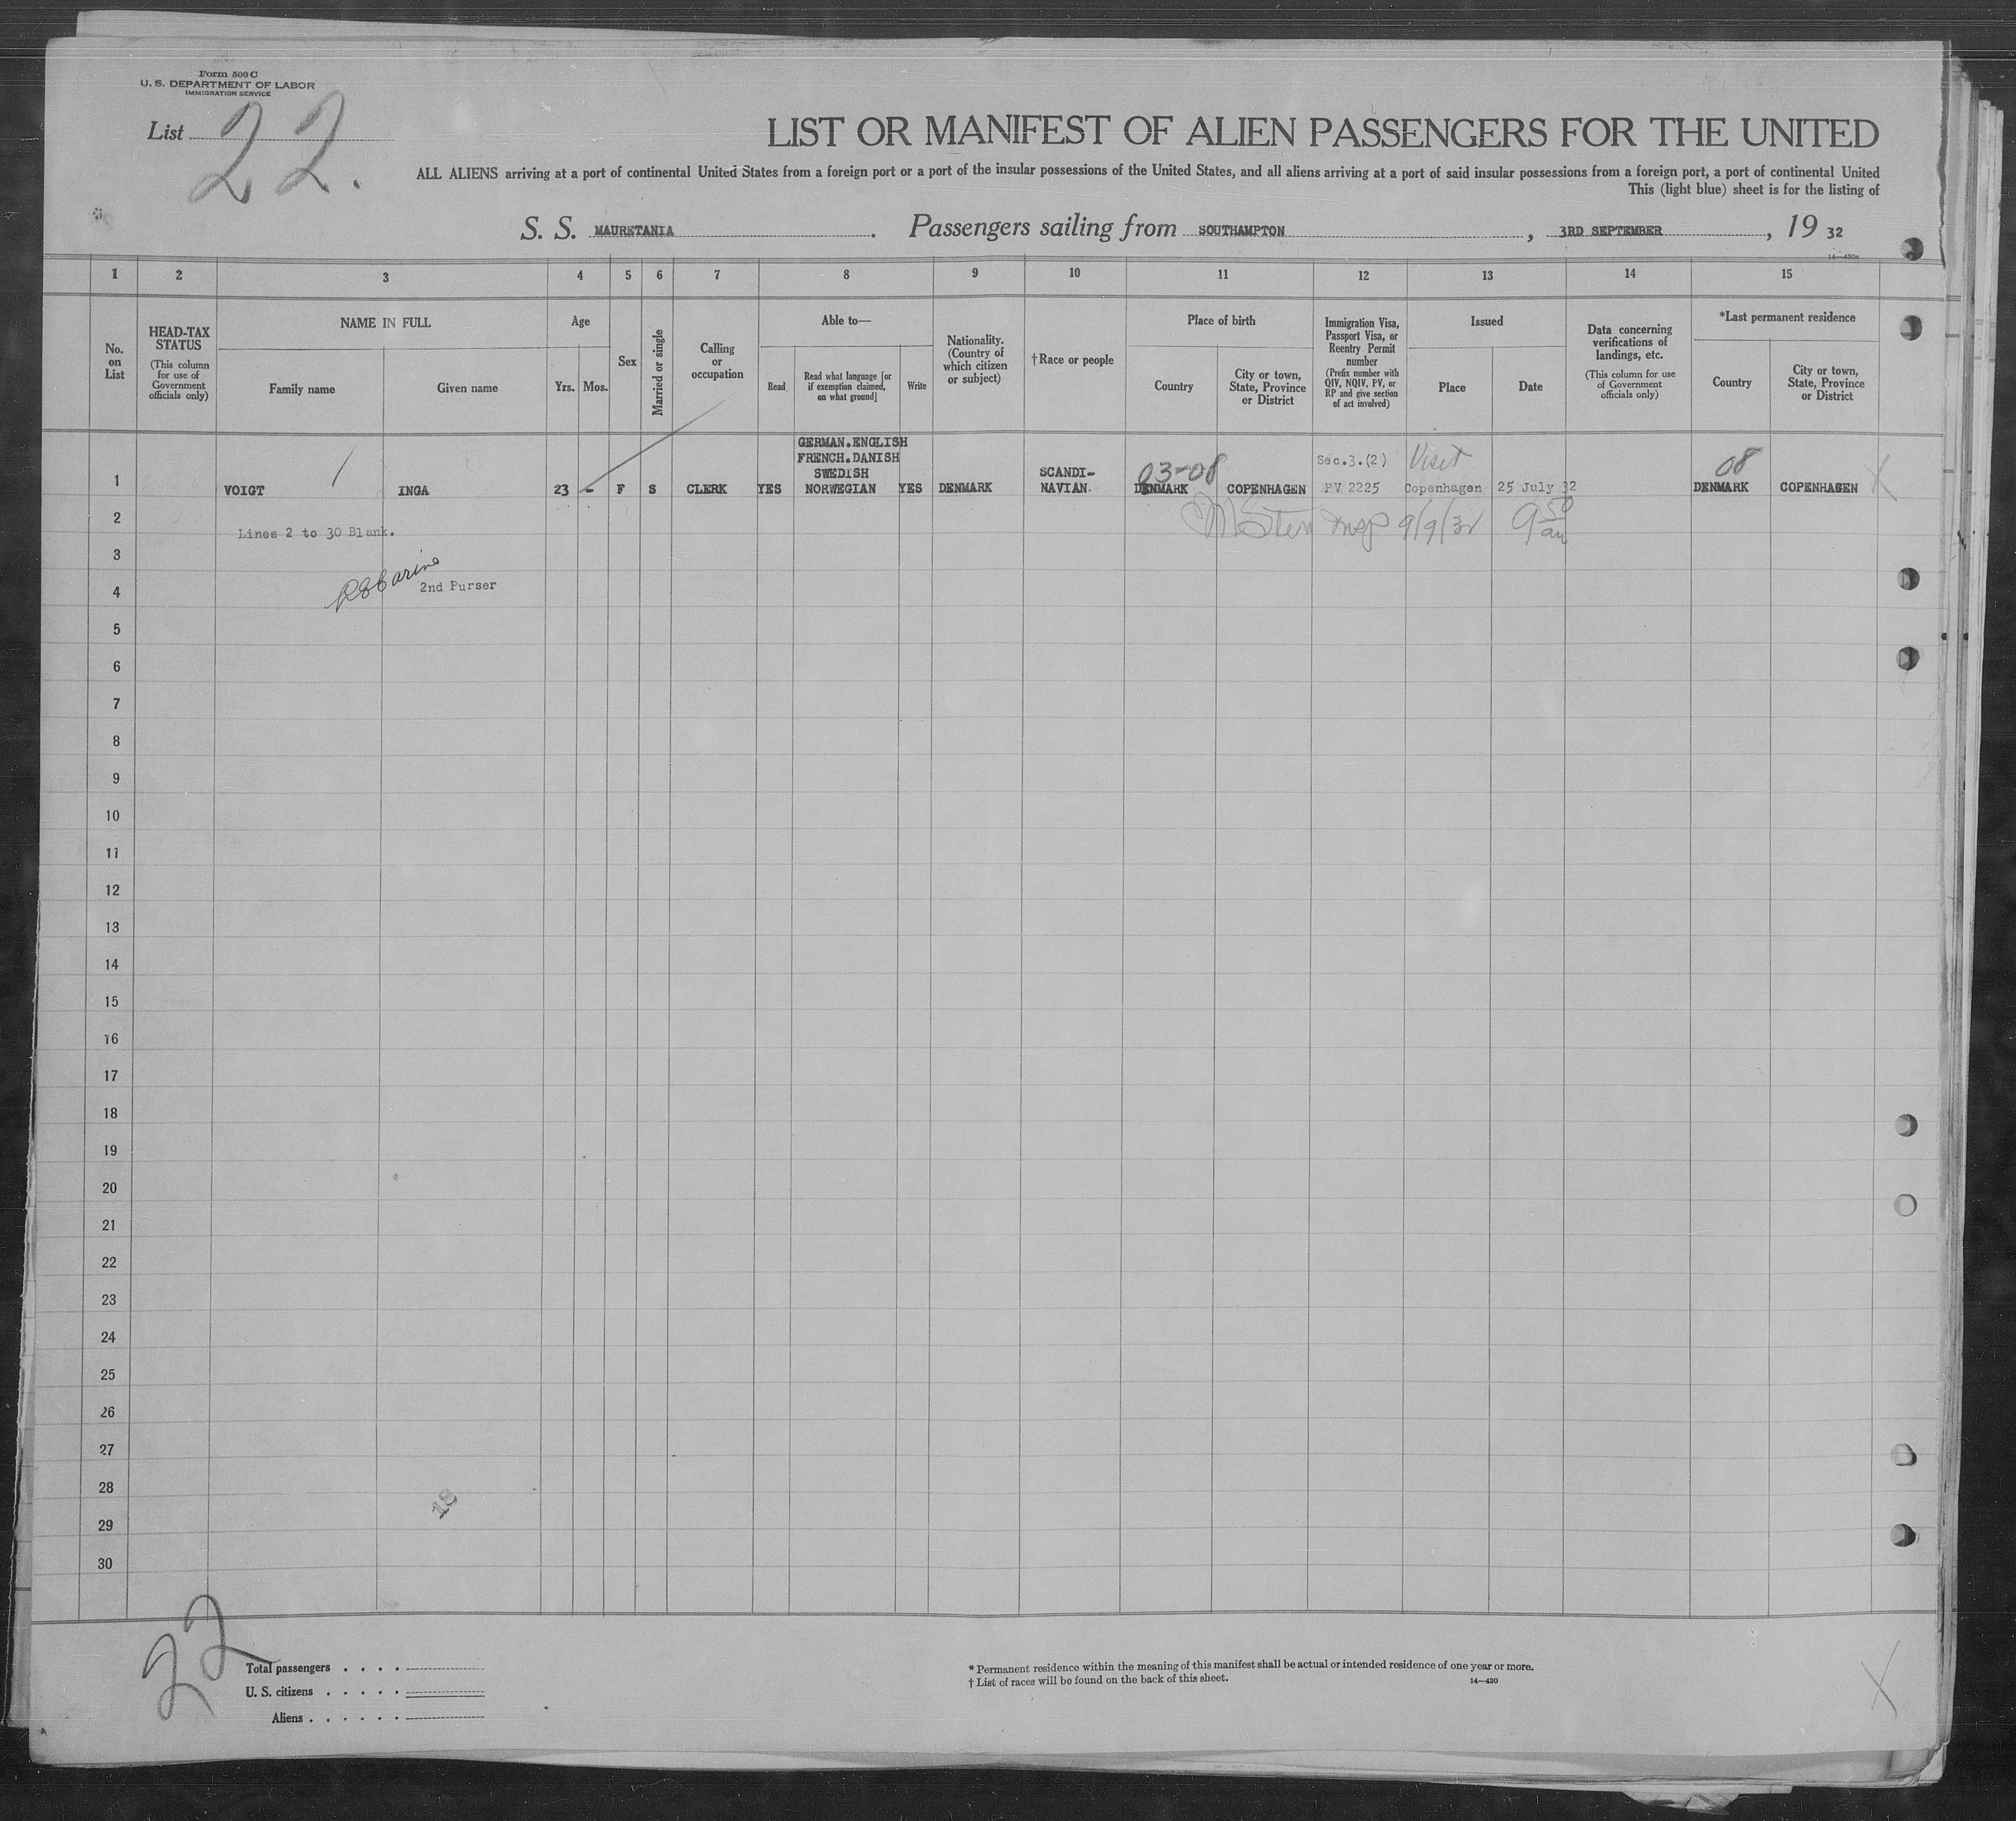 Form 500 C
U. S. DEPARTMENT OF LABOR
IMMIGRATION SERVICE
List 22.
LIST OR MANIFEST OF ALIEN PASSENGERS FOR THE UNITED
ALL ALIENS arriving at a port of continental United States from a foreign port or a port of the insular possessions of the United States, and all aliens arriving at a port of said insular possessions from a foreign port, a port of continental United
This (light blue) sheet is for the listing of
S. S. MAURETANIA. Passengers sailing from SOUTHAMPTON, 3RD SEPTEMBER, 19 32
14—430a
1 2 3 4 5 6 7 8 9 10 11 12 13 14 15
No. on List
HEAD-TAX STATUS
(This column for use of Government officials only)
NAME IN FULL
Family name
Given name
Age
Yrs. Mos.
Sex
Married or single
Calling or occupation
Able to—
Read
Read what language [or if exemption claimed, on what ground]
Write
Nationality. (Country of which citizen or subject)
†Race or people
Place of birth
Country
City or town, State, Province or District
Immigration Visa, Passport Visa, or Reentry Permit number
(Prefix number with QIV, NQIV, PV, or RP and give section of act involved)
Issued
Place
Date
Data concerning verifications of landings, etc.
(This column for use of Government officials only)
*Last permanent residence
Country
City or town, State, Province or District
GERMAN.ENGLISH
FRENCH.DANISH
SWEDISH
Sec.3.(2) Visit
SCANDI- 03-08 08
1 VOIGT INGA 23 - F S CLERK YES NORWEGIAN YES DENMARK NAVIAN. DENMARK COPENHAGEN PV 2225 Copenhagen 25 July 32 DENMARK COPENHAGEN X
2 Lines 2 to 30 Blank. 9/9/32 9 50 am
3
4 2nd Purser
5
6
7
8
9
10
11
12
13
14
15
16
17
18
19
20
21
22
23
24
25
26
27
28
18
29
30
22
Total passengers . . . .
U. S. citizens . . . . .
Aliens . . . . . .
* Permanent residence within the meaning of this manifest shall be actual or intended residence of one year or more.
† List of races will be found on the back of this sheet.
14—430
X